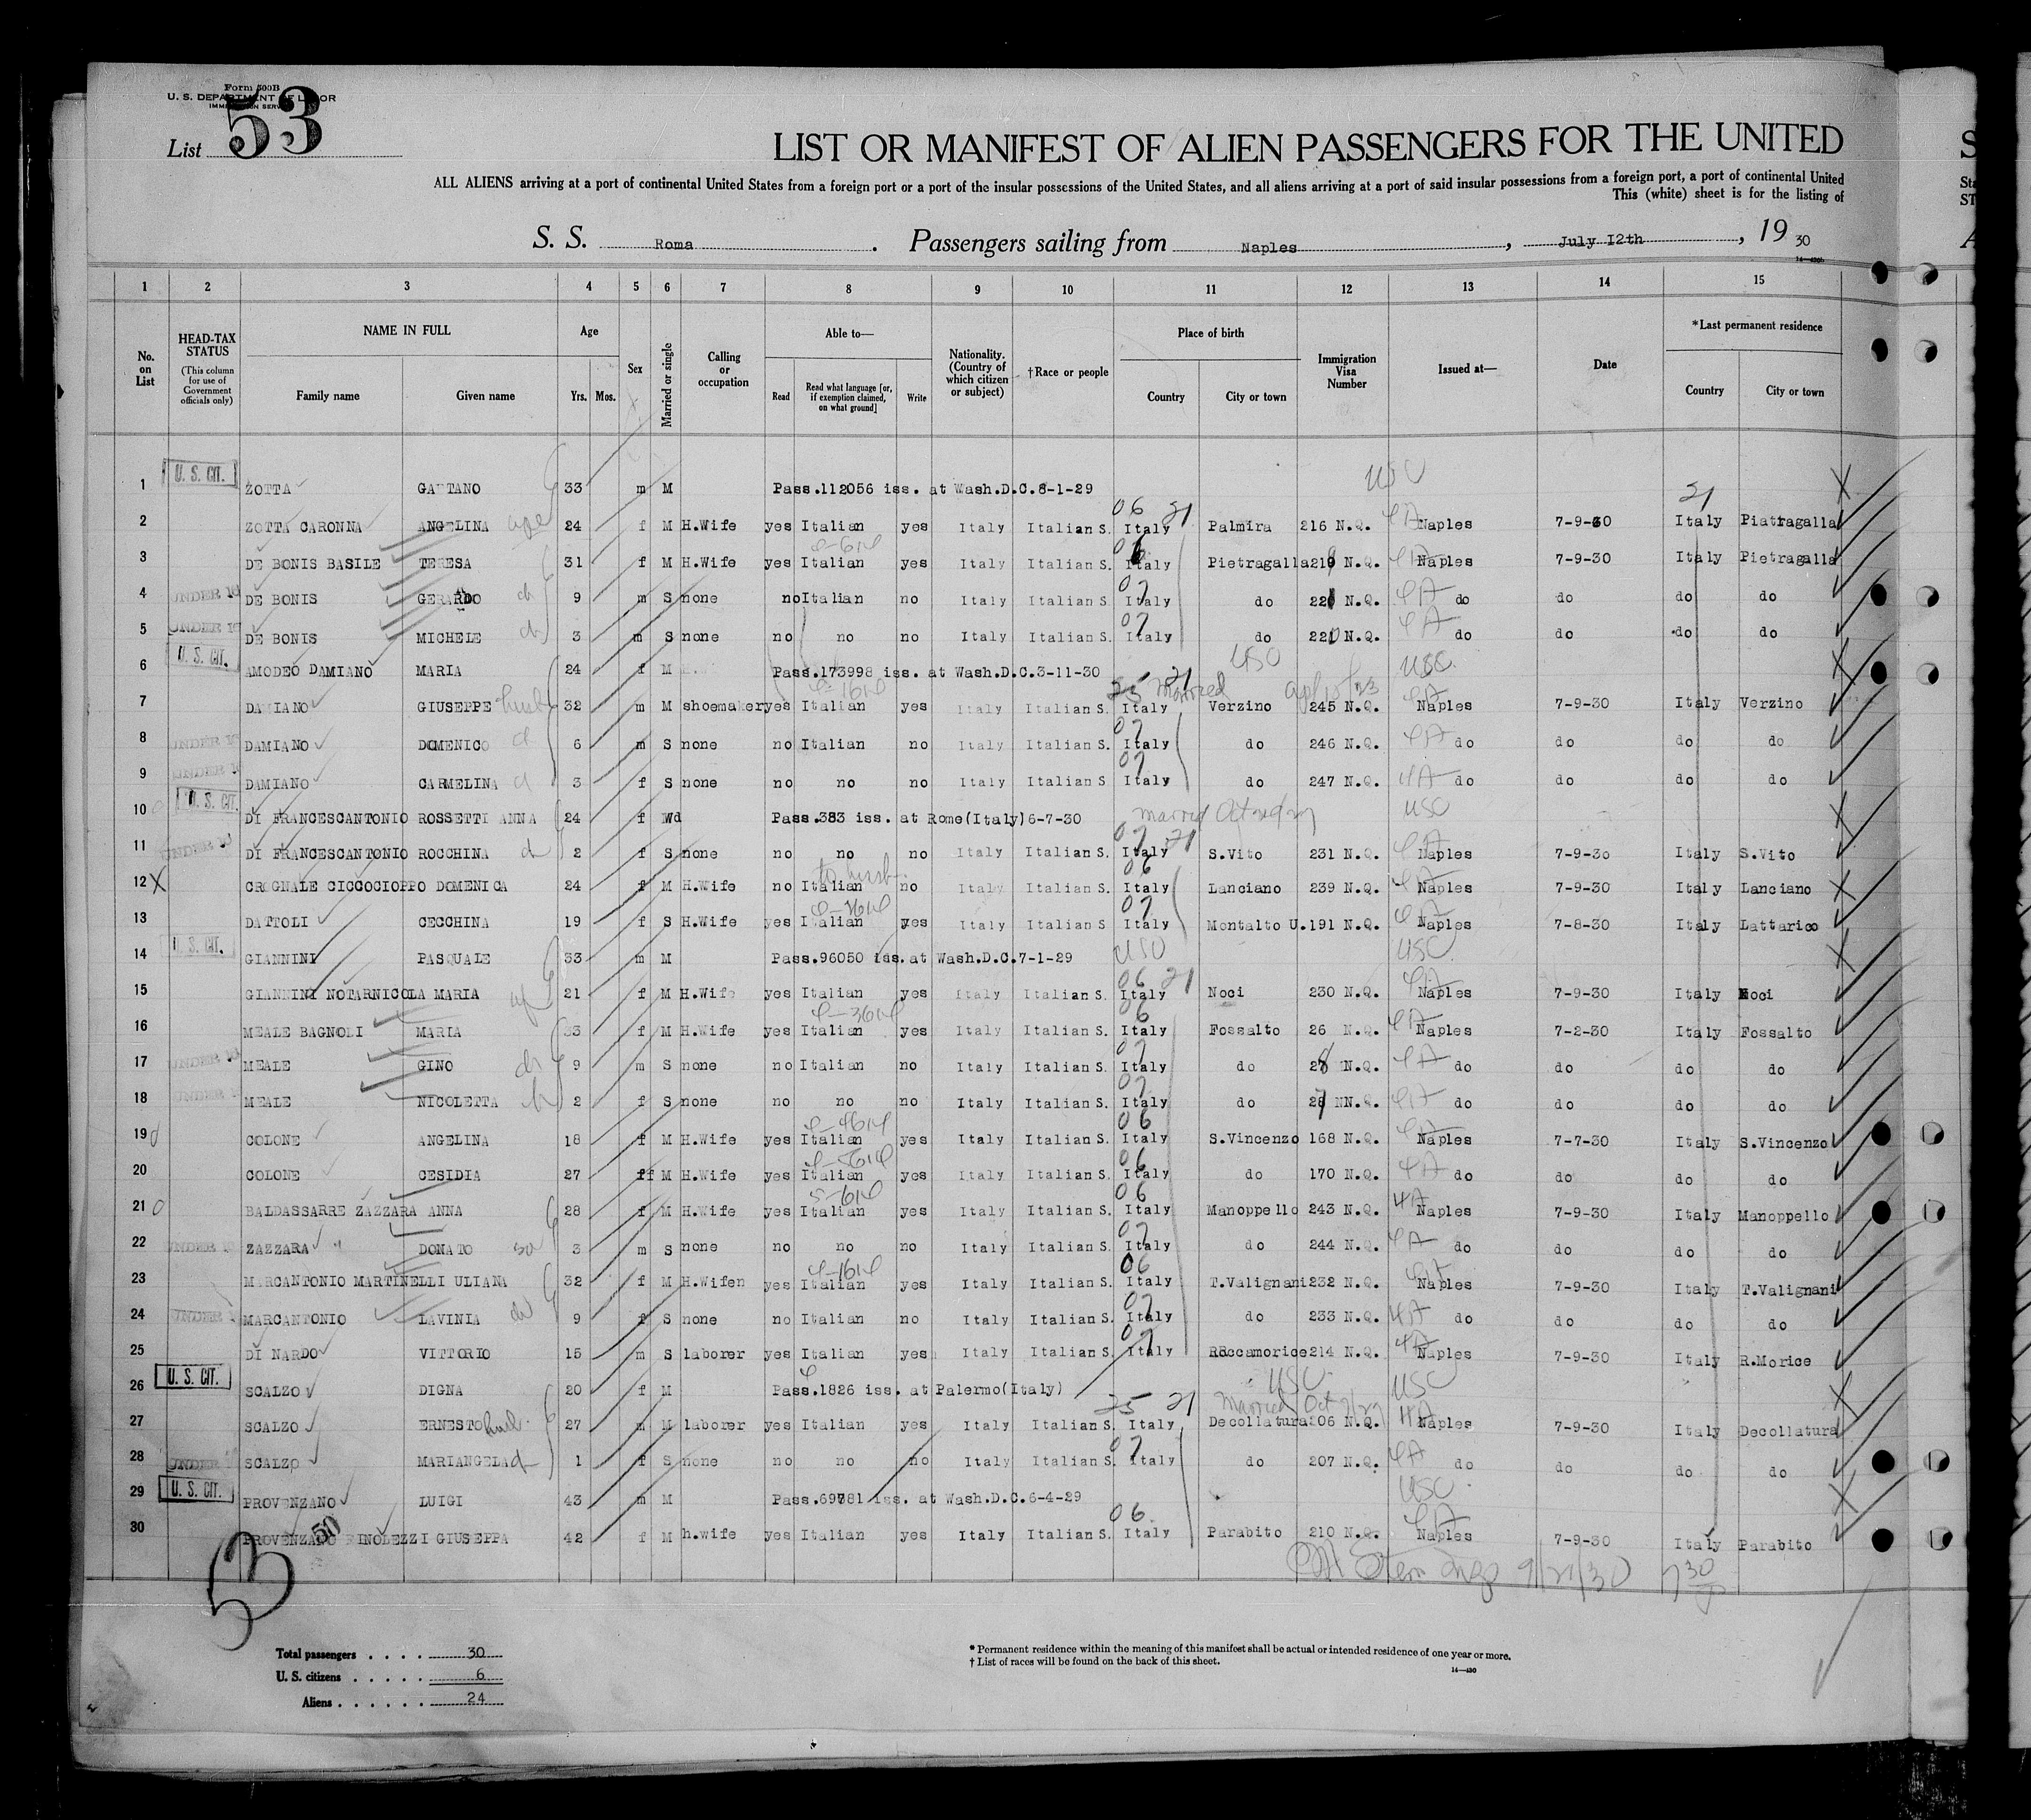 Form 500B
U. S. DEPARTMENT OF LABOR
IMMIGRATION SERVICE
List 53
LIST OR MANIFEST OF ALIEN PASSENGERS FOR THE UNITED
ALL ALIENS arriving at a port of continental United States from a foreign port or a port of the insular possessions of the United States, and all aliens arriving at a port of said insular possessions from a foreign port, a port of continental United
This (white) sheet is for the listing of
S. S. Roma. Passengers sailing from Naples, July 12th, 19 30
1 2 3 4 5 6 7 8 9 10 11 12 13 14 15
No. on List
HEAD-TAX STATUS (This column for use of Government officials only)
NAME IN FULL Family name Given name
Age Yrs. Mos.
Sex
Married or single
Calling or occupation
Able to— Read Read what language [or, if exemption claimed, on what ground] Write
Nationality. (Country of which citizen or subject)
†Race or people
Place of birth Country City or town
Immigration Visa Number
Issued at—
Date
*Last permanent residence Country City or town
1 U. S. CIT. ZOTTA GAETANO 33 m M Pass.112056 iss. at Wash.D.C.8-1-29 USC
2 ZOTTA CARONNA ANGELINA 24 f M H.Wife yes Italian yes Italy Italian S. Italy Palmira 216 N.Q. Naples 7-9-30 Italy Piatragalla
3 DE BONIS BASILE TERESA 31 f M H.Wife yes Italian yes Italy Italian S. Italy Pietragalla N.Q. Naples 7-9-30 Italy Pietragalla
4 UNDER 16 DE BONIS GERARDO 9 m S none no Italian no Italy Italian S. Italy do N.Q. 4A do do do do
5 UNDER 16 DE BONIS MICHELE 3 m S none no no no Italy Italian S. Italy do N.Q. 4A do do do do
6 U. S. CIT. AMODEO DAMIANO MARIA 24 f M Pass.173998 iss. at Wash.D.C.3-11-30 USC USC
7 DAMIANO GIUSEPPE husb 32 m M shoemaker yes Italian yes Italy Italian S. Italy married Verzino 245 N.Q. Naples 7-9-30 Italy Verzino
8 UNDER 16 DAMIANO DOMENICO 6 m S none no Italian no Italy Italian S. Italy do 246 N.Q. 4A do do do do
9 UNDER 16 DAMIANO CARMELINA 3 f S none no no no Italy Italian S. Italy do 247 N.Q. 4A do do do do
10 U. S. CIT. DI FRANCESCANTONIO ROSSETTI ANNA 24 f Wd Pass.383 iss. at Rome(Italy)6-7-30 married USC
11 UNDER 16 DI FRANCESCANTONIO ROCCHINA 2 f S none no no no Italy Italian S. Italy S.Vito 231 N.Q. Naples 7-9-30 Italy S.Vito
12 X CROGNALE CICCOCIOPPO DOMENICA 24 f M H.Wife no Italian no Italy Italian S. Italy Lanciano 239 N.Q. Naples 7-9-30 Italy Lanciano
13 DATTOLI CECCHINA 19 f S H.Wife yes Italian yes Italy Italian S. Italy Montalto U. 191 N.Q. Naples 7-8-30 Italy Lattarico
14 U. S. CIT. GIANNINI PASQUALE 33 m M Pass.96050 iss. at Wash.D.C.7-1-29 USC USC
15 GIANNINI NOTARNICOLA MARIA 21 f M H.Wife yes Italian yes Italy Italian S. Italy Noci 230 N.Q. Naples 7-9-30 Italy Noci
16 MEALE BAGNOLI MARIA 33 f M H.Wife yes Italian yes Italy Italian S. Italy Fossalto 26 N.Q. Naples 7-2-30 Italy Fossalto
17 UNDER 16 MEALE GINO 9 m S none no Italian no Italy Italian S. Italy do 28 N.Q. 4A do do do do
18 UNDER 16 MEALE NICOLETTA 2 f S none no no no Italy Italian S. Italy do 27 N.Q. 4A do do do do
19 COLONE ANGELINA 18 f M H.Wife yes Italian yes Italy Italian S. Italy S.Vincenzo 168 N.Q. Naples 7-7-30 Italy S.Vincenzo
20 COLONE CESIDIA 27 f M H.Wife yes Italian yes Italy Italian S. Italy do 170 N.Q. 4A do do do do
21 BALDASSARRE ZAZZARA ANNA 28 f M H.Wife yes Italian yes Italy Italian S. Italy Manoppello 243 N.Q. 4A Naples 7-9-30 Italy Manoppello
22 UNDER 16 ZAZZARA " DONATO 3 m S none no no no Italy Italian S. Italy do 244 N.Q. 4A do do do do
23 MARCANTONIO MARTINELLI ULIANA 32 f M H.Wifen yes Italian yes Italy Italian S. Italy T.Valignani 232 N.Q. Naples 7-9-30 Italy T.Valignani
24 UNDER 16 MARCANTONIO LAVINIA 9 f S none no Italian no Italy Italian S. Italy do 233 N.Q. 4A do do do do
25 DI NARDO VITTORIO 15 m S laborer yes Italian yes Italy Italian S. Italy Roccamorice 214 N.Q. 4A Naples 7-9-30 Italy R.Morice
26 U. S. CIT. SCALZO DIGNA 20 f M Pass.1826 iss. at Palermo(Italy) USC USC
27 SCALZO ERNESTO husb. 27 m M laborer yes Italian yes Italy Italian S. Italy Married Oct Decollatura 206 N.Q. Naples 7-9-30 Italy Decollatura
28 UNDER SCALZO MARIANGELA 1 f S none no no no Italy Italian S. Italy do 207 N.Q. 4A do do do do
29 U. S. CIT. PROVENZANO LUIGI 43 m M Pass.69781 iss. at Wash.D.C.6-4-29 USC
30 PROVENZANO FINOLEZZI GIUSEPPA 42 f M h.wife yes Italian yes Italy Italian S. Italy Parabito 210 N.Q. Naples 7-9-30 Italy Parabito
53 30
Total passengers 30
U. S. citizens 6
Aliens 24
* Permanent residence within the meaning of this manifest shall be actual or intended residence of one year or more.
† List of races will be found on the back of this sheet.
14—430